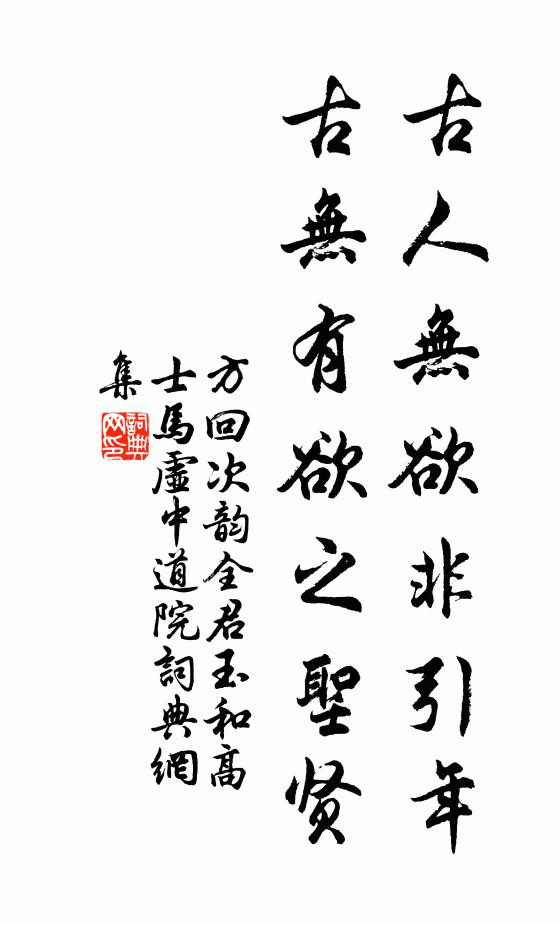 古人無欲非引年
古無有欲之聖贤
方回次韵全君玉和高
士馬虛中道院詞典網
集
詞典
网印